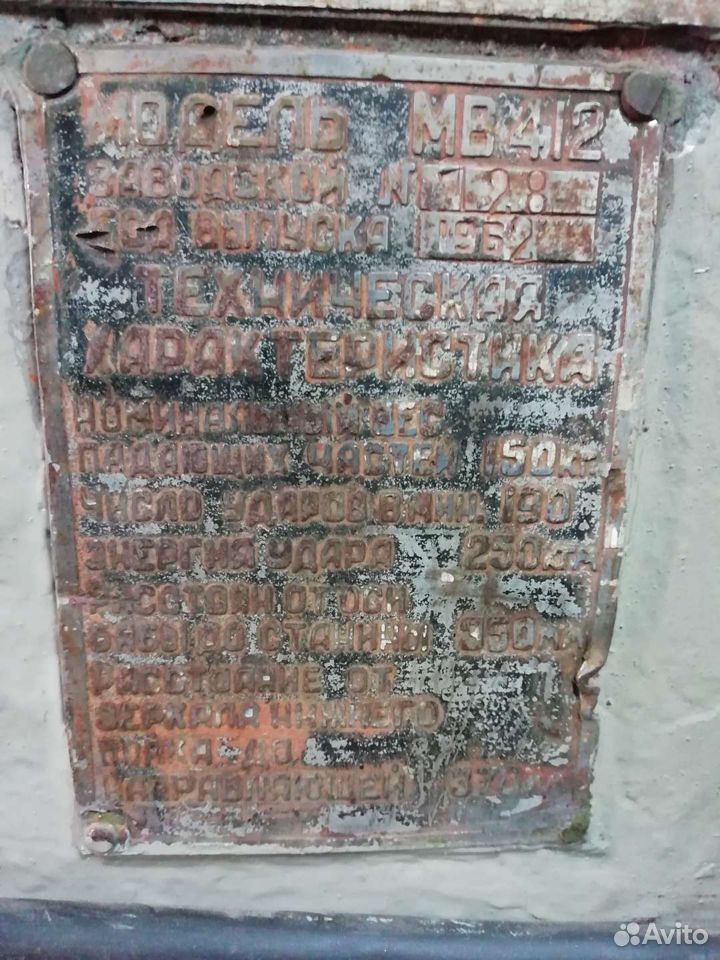 МОДЕЛЬ МВ412
ЗАВОДСКОЙ N 128
ГОД ВЫПУСКА 1962
ТЕХНИЧЕСКАЯ
ХАРАКТЕРИСТИКА
НОМИНАЛЬНЫЙ ВЕС
ПАДАЮЩИХ ЧАСТЕЙ 150КГ
ЧИСЛО УДАРОВ В МИН. 190
ЭНЕРГИЯ УДАРА 250
РАССТОЯН ОТ ОСИ
БАБЫ ДО СТАНИНЫ 350ММ
РАССТОЯНИЕ ОТ
ЗЕРКАЛА НИЖНЕГО
БОЙКА ДО
НАПРАВЛЯЮЩЕЙ
Avito